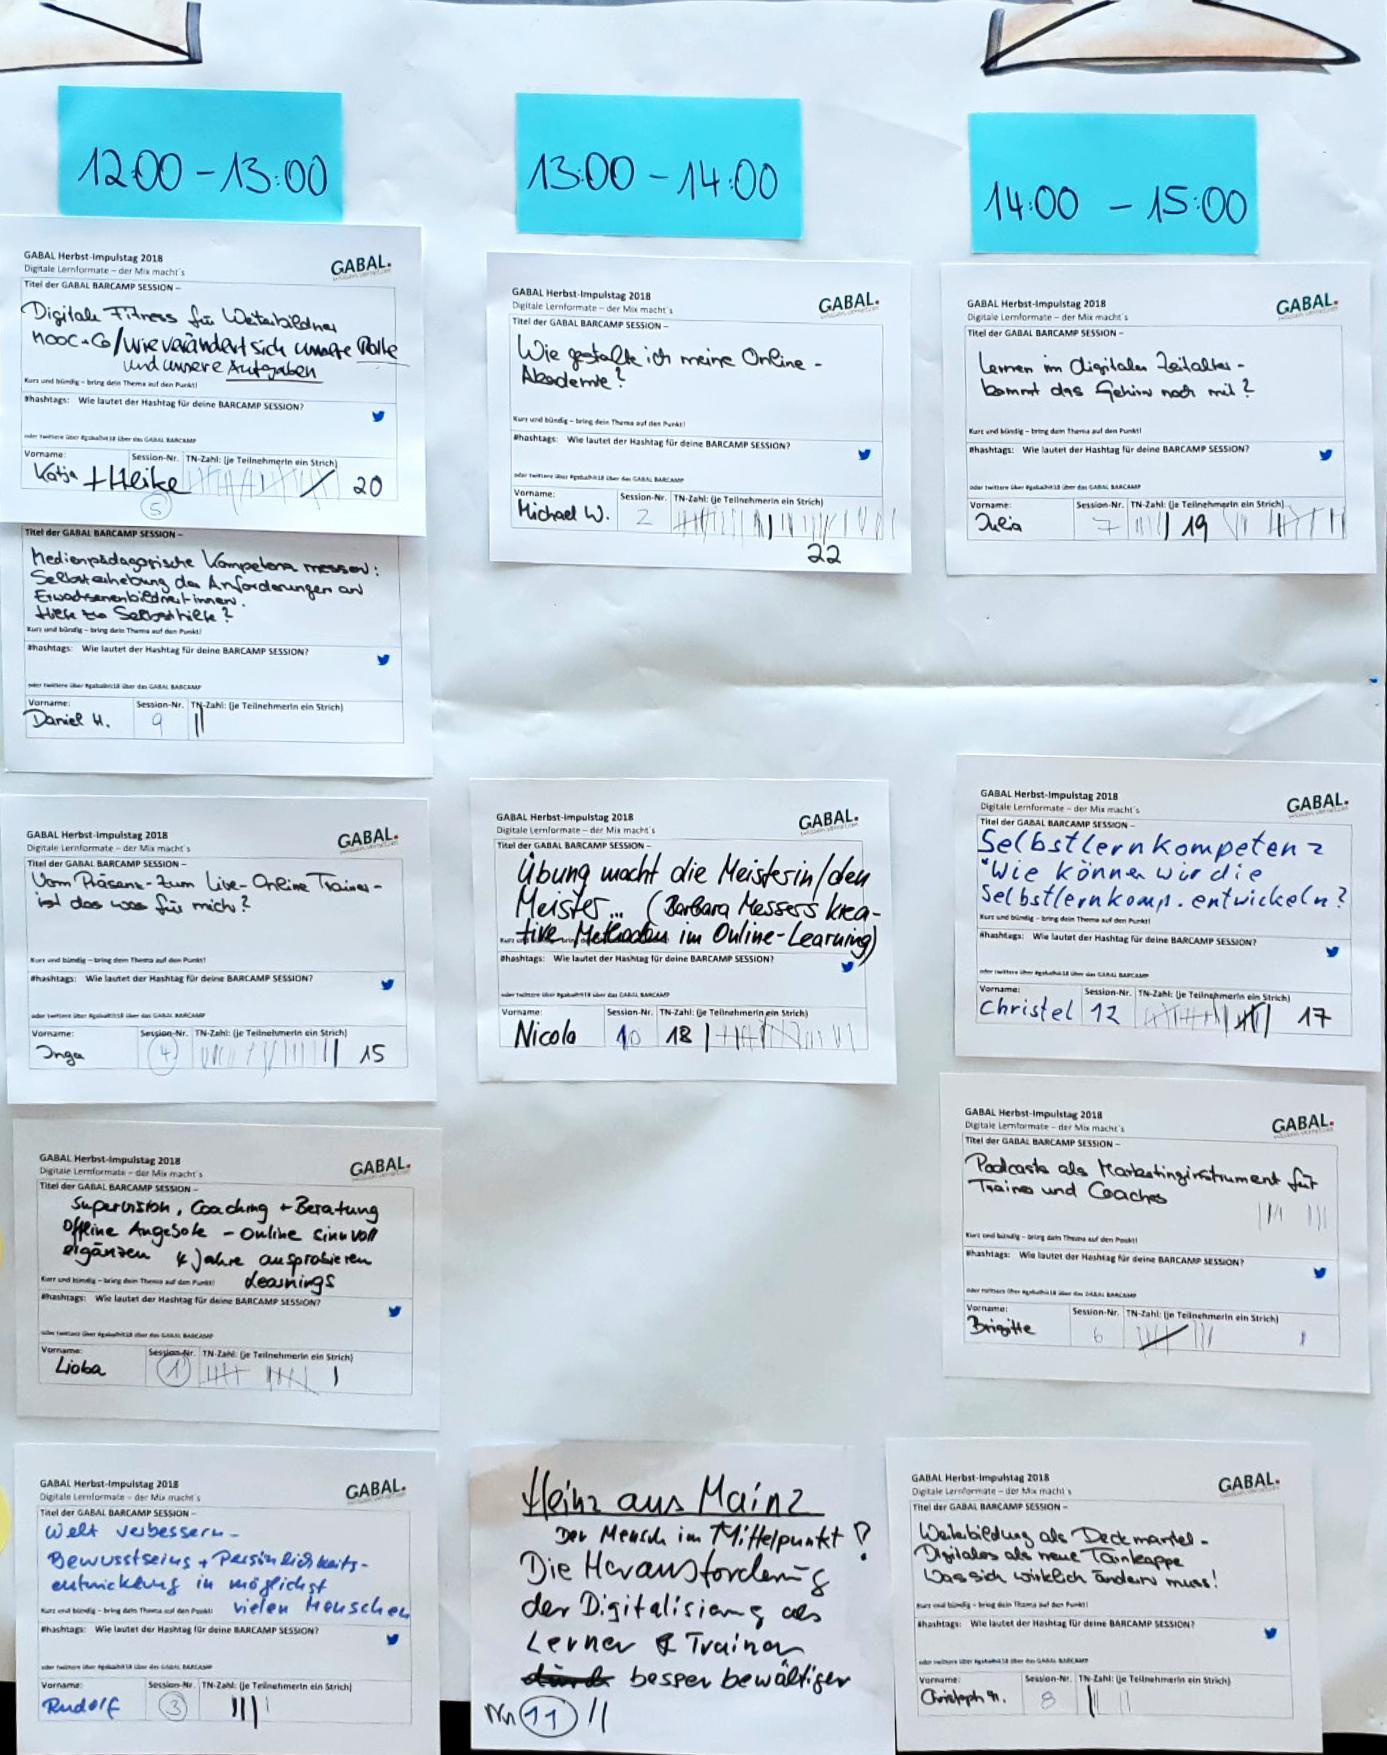 12:00 - 13:00
GABAL Herbst-Impulstag 2018
Digitale Lernformate – der Mix macht´s
GABAL.
Titel der GABAL BARCAMP SESSION –
Digitale Fitness für Weiterbildner
MOOC + Co / Wie verändert sich unsere Rolle
und unsere Aufgaben
Kurz und bündig – bring dein Thema auf den Punkt!
#hashtags: Wie lautet der Hashtag für deine BARCAMP SESSION?
oder twittere über #gabalhit18 über das GABAL BARCAMP
Vorname: Session-Nr. TN-Zahl: (je TeilnehmerIn ein Strich)
Katja + Heike 5 20
Titel der GABAL BARCAMP SESSION –
Medienpädagogische Kompetenz messen:
Selbsterhebung der Anforderungen an
Erwachsenenbildner:innen.
Hilfe zur Selbsthilfe?
Kurz und bündig – bring dein Thema auf den Punkt!
#hashtags: Wie lautet der Hashtag für deine BARCAMP SESSION?
oder twittere über #gabalhit18 über das GABAL BARCAMP
Vorname: Session-Nr. TN-Zahl: (je TeilnehmerIn ein Strich)
Daniel H. 9
GABAL Herbst-Impulstag 2018
Digitale Lernformate – der Mix macht´s
GABAL.
Titel der GABAL BARCAMP SESSION –
Vom Präsenz- zum Live-Online Trainer -
ist das was für mich?
Kurz und bündig – bring dein Thema auf den Punkt!
#hashtags: Wie lautet der Hashtag für deine BARCAMP SESSION?
oder twittere über #gabalhit18 über das GABAL BARCAMP
Vorname: Session-Nr. TN-Zahl: (je TeilnehmerIn ein Strich)
Inga 4 15
GABAL Herbst-Impulstag 2018
Digitale Lernformate – der Mix macht´s
GABAL.
Titel der GABAL BARCAMP SESSION –
Supervision, Coaching + Beratung
Offline Angebote - Online sinnvoll
ergänzen 4 Jahre ausprobieren
Learnings
Kurz und bündig – bring dein Thema auf den Punkt!
#hashtags: Wie lautet der Hashtag für deine BARCAMP SESSION?
oder twittere über #gabalhit18 über das GABAL BARCAMP
Vorname: Session-Nr. TN-Zahl: (je TeilnehmerIn ein Strich)
Lioba 1
GABAL Herbst-Impulstag 2018
Digitale Lernformate – der Mix macht´s
GABAL.
Titel der GABAL BARCAMP SESSION –
Welt verbessern -
Bewusstseins + Persönlichkeits-
entwicklung in möglichst
vielen Menschen
Kurz und bündig – bring dein Thema auf den Punkt!
#hashtags: Wie lautet der Hashtag für deine BARCAMP SESSION?
oder twittere über #gabalhit18 über das GABAL BARCAMP
Vorname: Session-Nr. TN-Zahl: (je TeilnehmerIn ein Strich)
Rudolf 3
13:00 - 14:00
GABAL Herbst-Impulstag 2018
Digitale Lernformate – der Mix macht´s
GABAL.
Titel der GABAL BARCAMP SESSION –
Wie gestalte ich meine Online -
Akademie?
Kurz und bündig – bring dein Thema auf den Punkt!
#hashtags: Wie lautet der Hashtag für deine BARCAMP SESSION?
oder twittere über #gabalhit18 über das GABAL BARCAMP
Vorname: Session-Nr. TN-Zahl: (je TeilnehmerIn ein Strich)
Michael W. 2
22
GABAL Herbst-Impulstag 2018
Digitale Lernformate – der Mix macht´s
GABAL.
Titel der GABAL BARCAMP SESSION –
Übung macht die Meisterin/den
Meister... (Barbara Messers krea-
tive Methoden im Online-Learning)
#hashtags: Wie lautet der Hashtag für deine BARCAMP SESSION?
oder twittere über #gabalhit18 über das GABAL BARCAMP
Vorname: Session-Nr. TN-Zahl: (je TeilnehmerIn ein Strich)
Nicola 10 18
Heinz aus Mainz
Der Mensch im Mittelpunkt?
Die Herausforderung
der Digitalisierung als
Lerner & Trainer
besser bewältigen
Nr. 11
14:00 - 15:00
GABAL Herbst-Impulstag 2018
Digitale Lernformate – der Mix macht´s
GABAL.
Titel der GABAL BARCAMP SESSION –
Lernen im digitalen Zeitalter -
kommt das Gehirn noch mit?
Kurz und bündig – bring dein Thema auf den Punkt!
#hashtags: Wie lautet der Hashtag für deine BARCAMP SESSION?
oder twittere über #gabalhit18 über das GABAL BARCAMP
Vorname: Session-Nr. TN-Zahl: (je TeilnehmerIn ein Strich)
Julia 7 19
GABAL Herbst-Impulstag 2018
Digitale Lernformate – der Mix macht´s
GABAL.
Titel der GABAL BARCAMP SESSION –
Selbstlernkompetenz
"Wie können wir die
Selbstlernkomp. entwickeln?
Kurz und bündig – bring dein Thema auf den Punkt!
#hashtags: Wie lautet der Hashtag für deine BARCAMP SESSION?
oder twittere über #gabalhit18 über das GABAL BARCAMP
Vorname: Session-Nr. TN-Zahl: (je TeilnehmerIn ein Strich)
Christel 12 17
GABAL Herbst-Impulstag 2018
Digitale Lernformate – der Mix macht´s
GABAL.
Titel der GABAL BARCAMP SESSION –
Podcasts als Marketinginstrument für
Trainer und Coaches
Kurz und bündig – bring dein Thema auf den Punkt!
#hashtags: Wie lautet der Hashtag für deine BARCAMP SESSION?
oder twittere über #gabalhit18 über das GABAL BARCAMP
Vorname: Session-Nr. TN-Zahl: (je TeilnehmerIn ein Strich)
Brigitte 6
GABAL Herbst-Impulstag 2018
Digitale Lernformate – der Mix macht´s
GABAL.
Titel der GABAL BARCAMP SESSION –
Weiterbildung als Deckmantel -
Digitales als neue Tarnkappe
Was sich wirklich ändern muss!
Kurz und bündig – bring dein Thema auf den Punkt!
#hashtags: Wie lautet der Hashtag für deine BARCAMP SESSION?
oder twittere über #gabalhit18 über das GABAL BARCAMP
Vorname: Session-Nr. TN-Zahl: (je TeilnehmerIn ein Strich)
Christoph M. 8